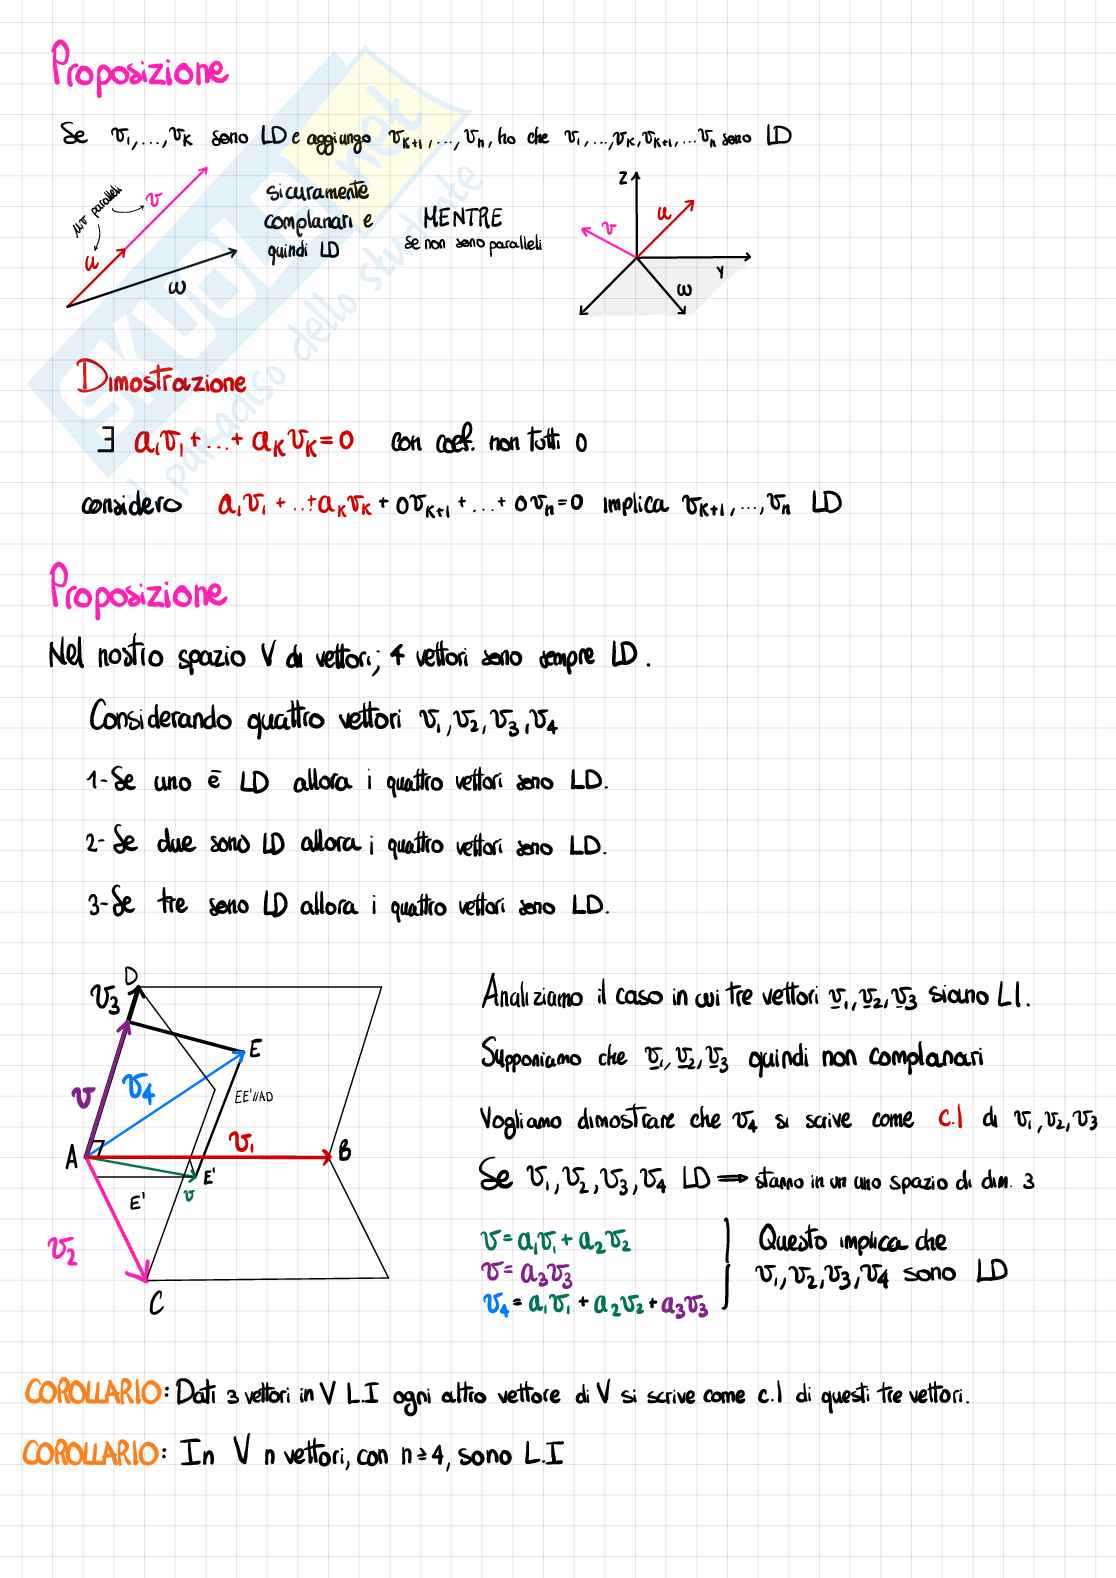 Proposizione
Se v₁,...,vₖ sono LD e aggiungo vₖ₊₁,...,vₙ, ho che v₁,...,vₖ,vₖ₊₁,...vₙ sono LD
u,v paralleli
v
u
w
sicuramente
complanari e
quindi LD
MENTRE
se non sono paralleli
z
u
v
y
w
Dimostrazione
∃ a₁v₁+...+aₖvₖ=0 con coef. non tutti 0
considero a₁v₁+...+aₖvₖ+0vₖ₊₁+...+0vₙ=0 implica vₖ₊₁,...,vₙ LD
Proposizione
Nel nostro spazio V di vettori; 4 vettori sono sempre LD.
Considerando quattro vettori v₁,v₂,v₃,v₄
1-Se uno è LD allora i quattro vettori sono LD.
2-Se due sono LD allora i quattro vettori sono LD.
3-Se tre sono LD allora i quattro vettori sono LD.
D
v₃
E
v₄
v
EE'//AD
v₁
A
B
E'
v
E'
v₂
C
Analiziamo il caso in cui tre vettori v₁,v₂,v₃ siano LI.
Supponiamo che v₁,v₂,v₃ quindi non complanari
Vogliamo dimostrare che v₄ si scrive come c.l di v₁,v₂,v₃
Se v₁,v₂,v₃,v₄ LD ⟹ stanno in un uno spazio di dim. 3
v=a₁v₁+a₂v₂
v=a₃v₃
v₄=a₁v₁+a₂v₂+a₃v₃
Questo implica che
v₁,v₂,v₃,v₄ sono LD
COROLLARIO: Dati 3 vettori in V L.I ogni altro vettore di V si scrive come c.l di questi tre vettori.
COROLLARIO: In V n vettori, con n≥4, sono L.I
SKUOLA.net
il paradiso dello studente